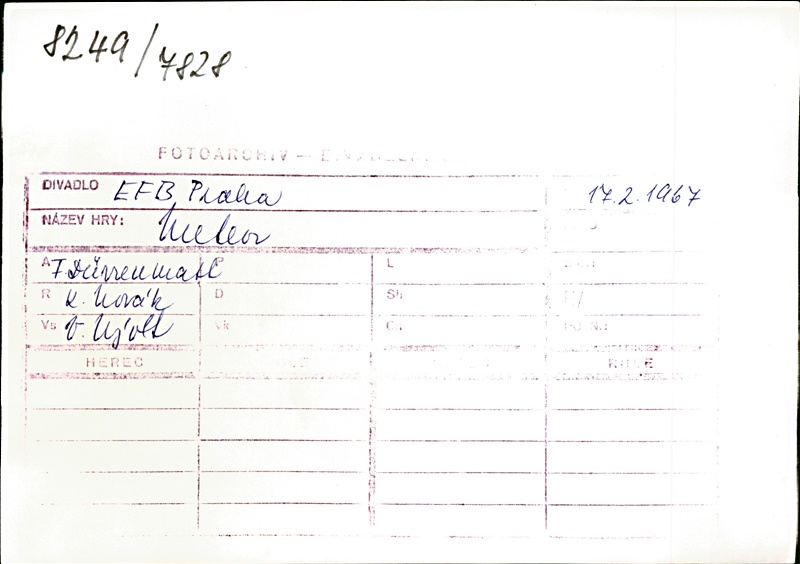 8249/7828
FOTOARCHIV –
DIVADLO EFB Praha 17.2.1967
NÁZEV HRY: Meteor
A F Dürrenmatt L
R K. Novák D Sh
Vs V. Nývlt
HEREC ROLE